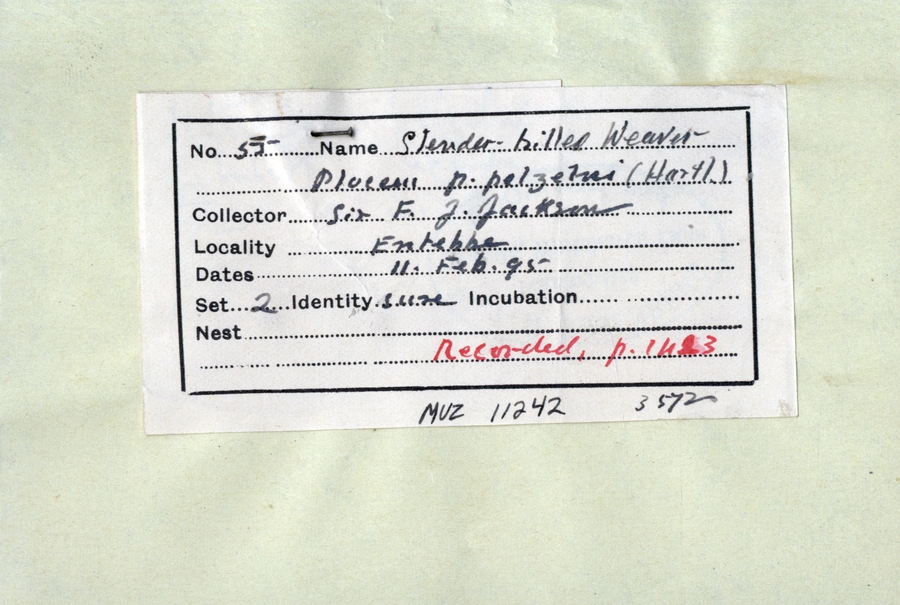 No. 55 Name Slender-billed Weaver
Ploceus p. pelzelni (Hartl.)
Collector Sir F. J. Jackson
Locality Entebbe
Dates 11. Feb. 95
Set 2 Identity sure Incubation
Nest
Recorded, p.
MVZ 11242 3572